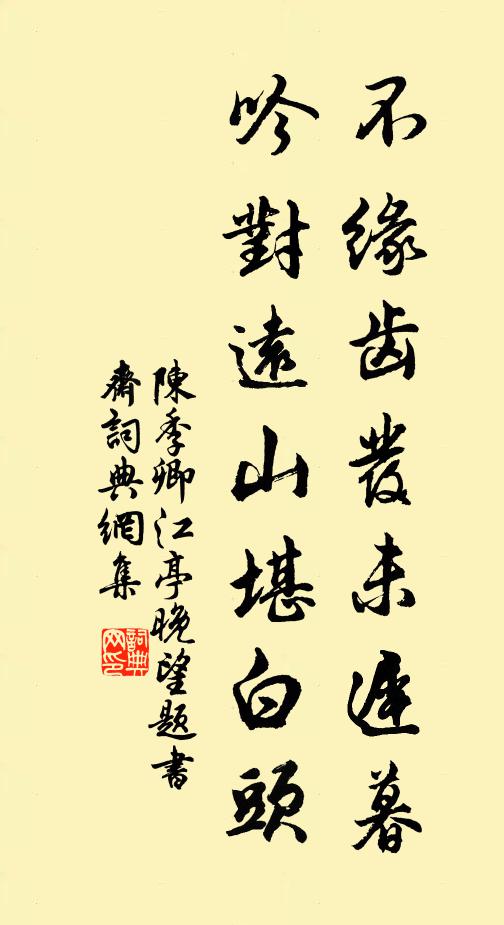 不緣齿發未遲暮
吟對遠山堪白頭
陳季卿江亭晚望題書
齋詞典網集
詞典
网印